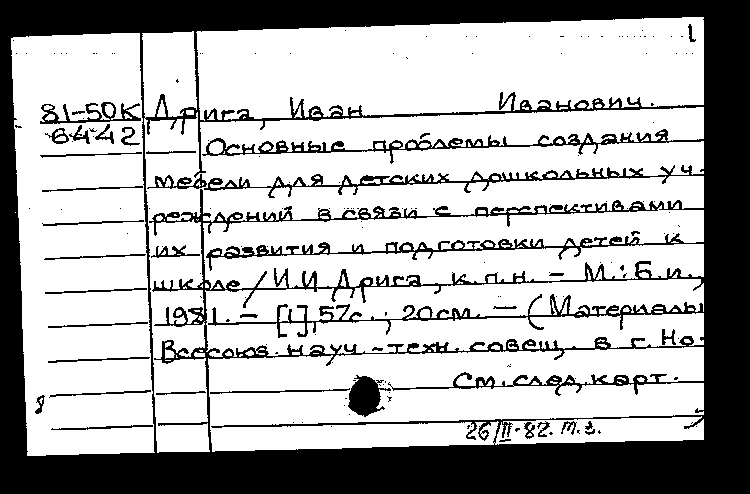 1
81-50К Дрига, Иван Иванович.
6442
Основные проблемы создания
мебели для детских дошкольных уч-
реждений в связи с перспективами
их развития и подготовки детей к
школе / И.И Дрига, к.п.н. - М.: Б.и.,
1981. - [1], 57с. ; 20см. - (Материалы
Всесоюз. науч.-техн. совещ. в г. Но-
См. след. карт.
8
26/II-82. т.з.